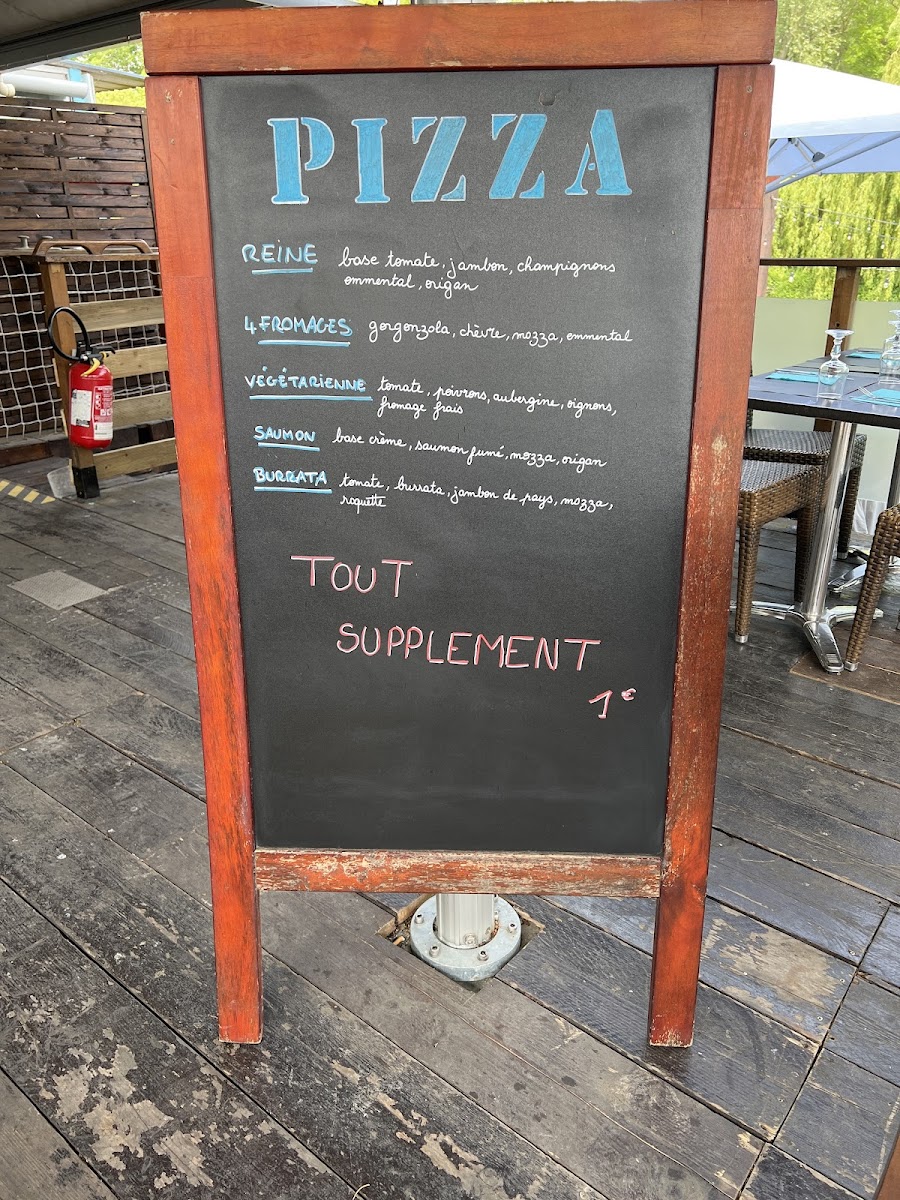 PIZZA
REINE base tomate, jambon, champignons
emmental, origan
4 FROMAGES gorgonzola, chèvre, mozza, emmental
VÉGÉTARIENNE tomate, poivrons, aubergine, oignons,
fromage frais
SAUMON base crème, saumon fumé, mozza, origan
BURRATA tomate, burrata, jambon de pays, mozza,
roquette
TOUT
SUPPLEMENT
1€